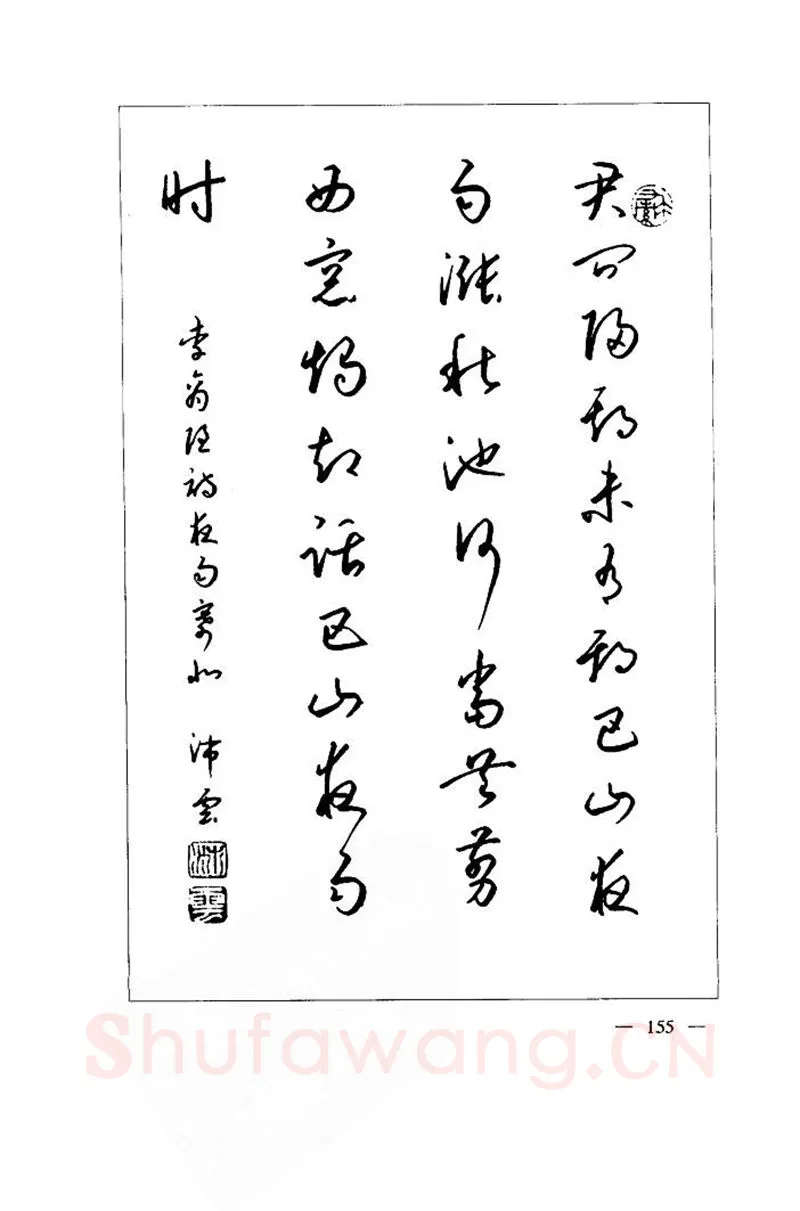 君问归期未有期巴山夜
雨涨秋池何当共剪
西窗烛却话巴山夜雨
时
李商隐诗夜雨寄北 沛雲
沛雲
— 155 —
Shufawang.CN